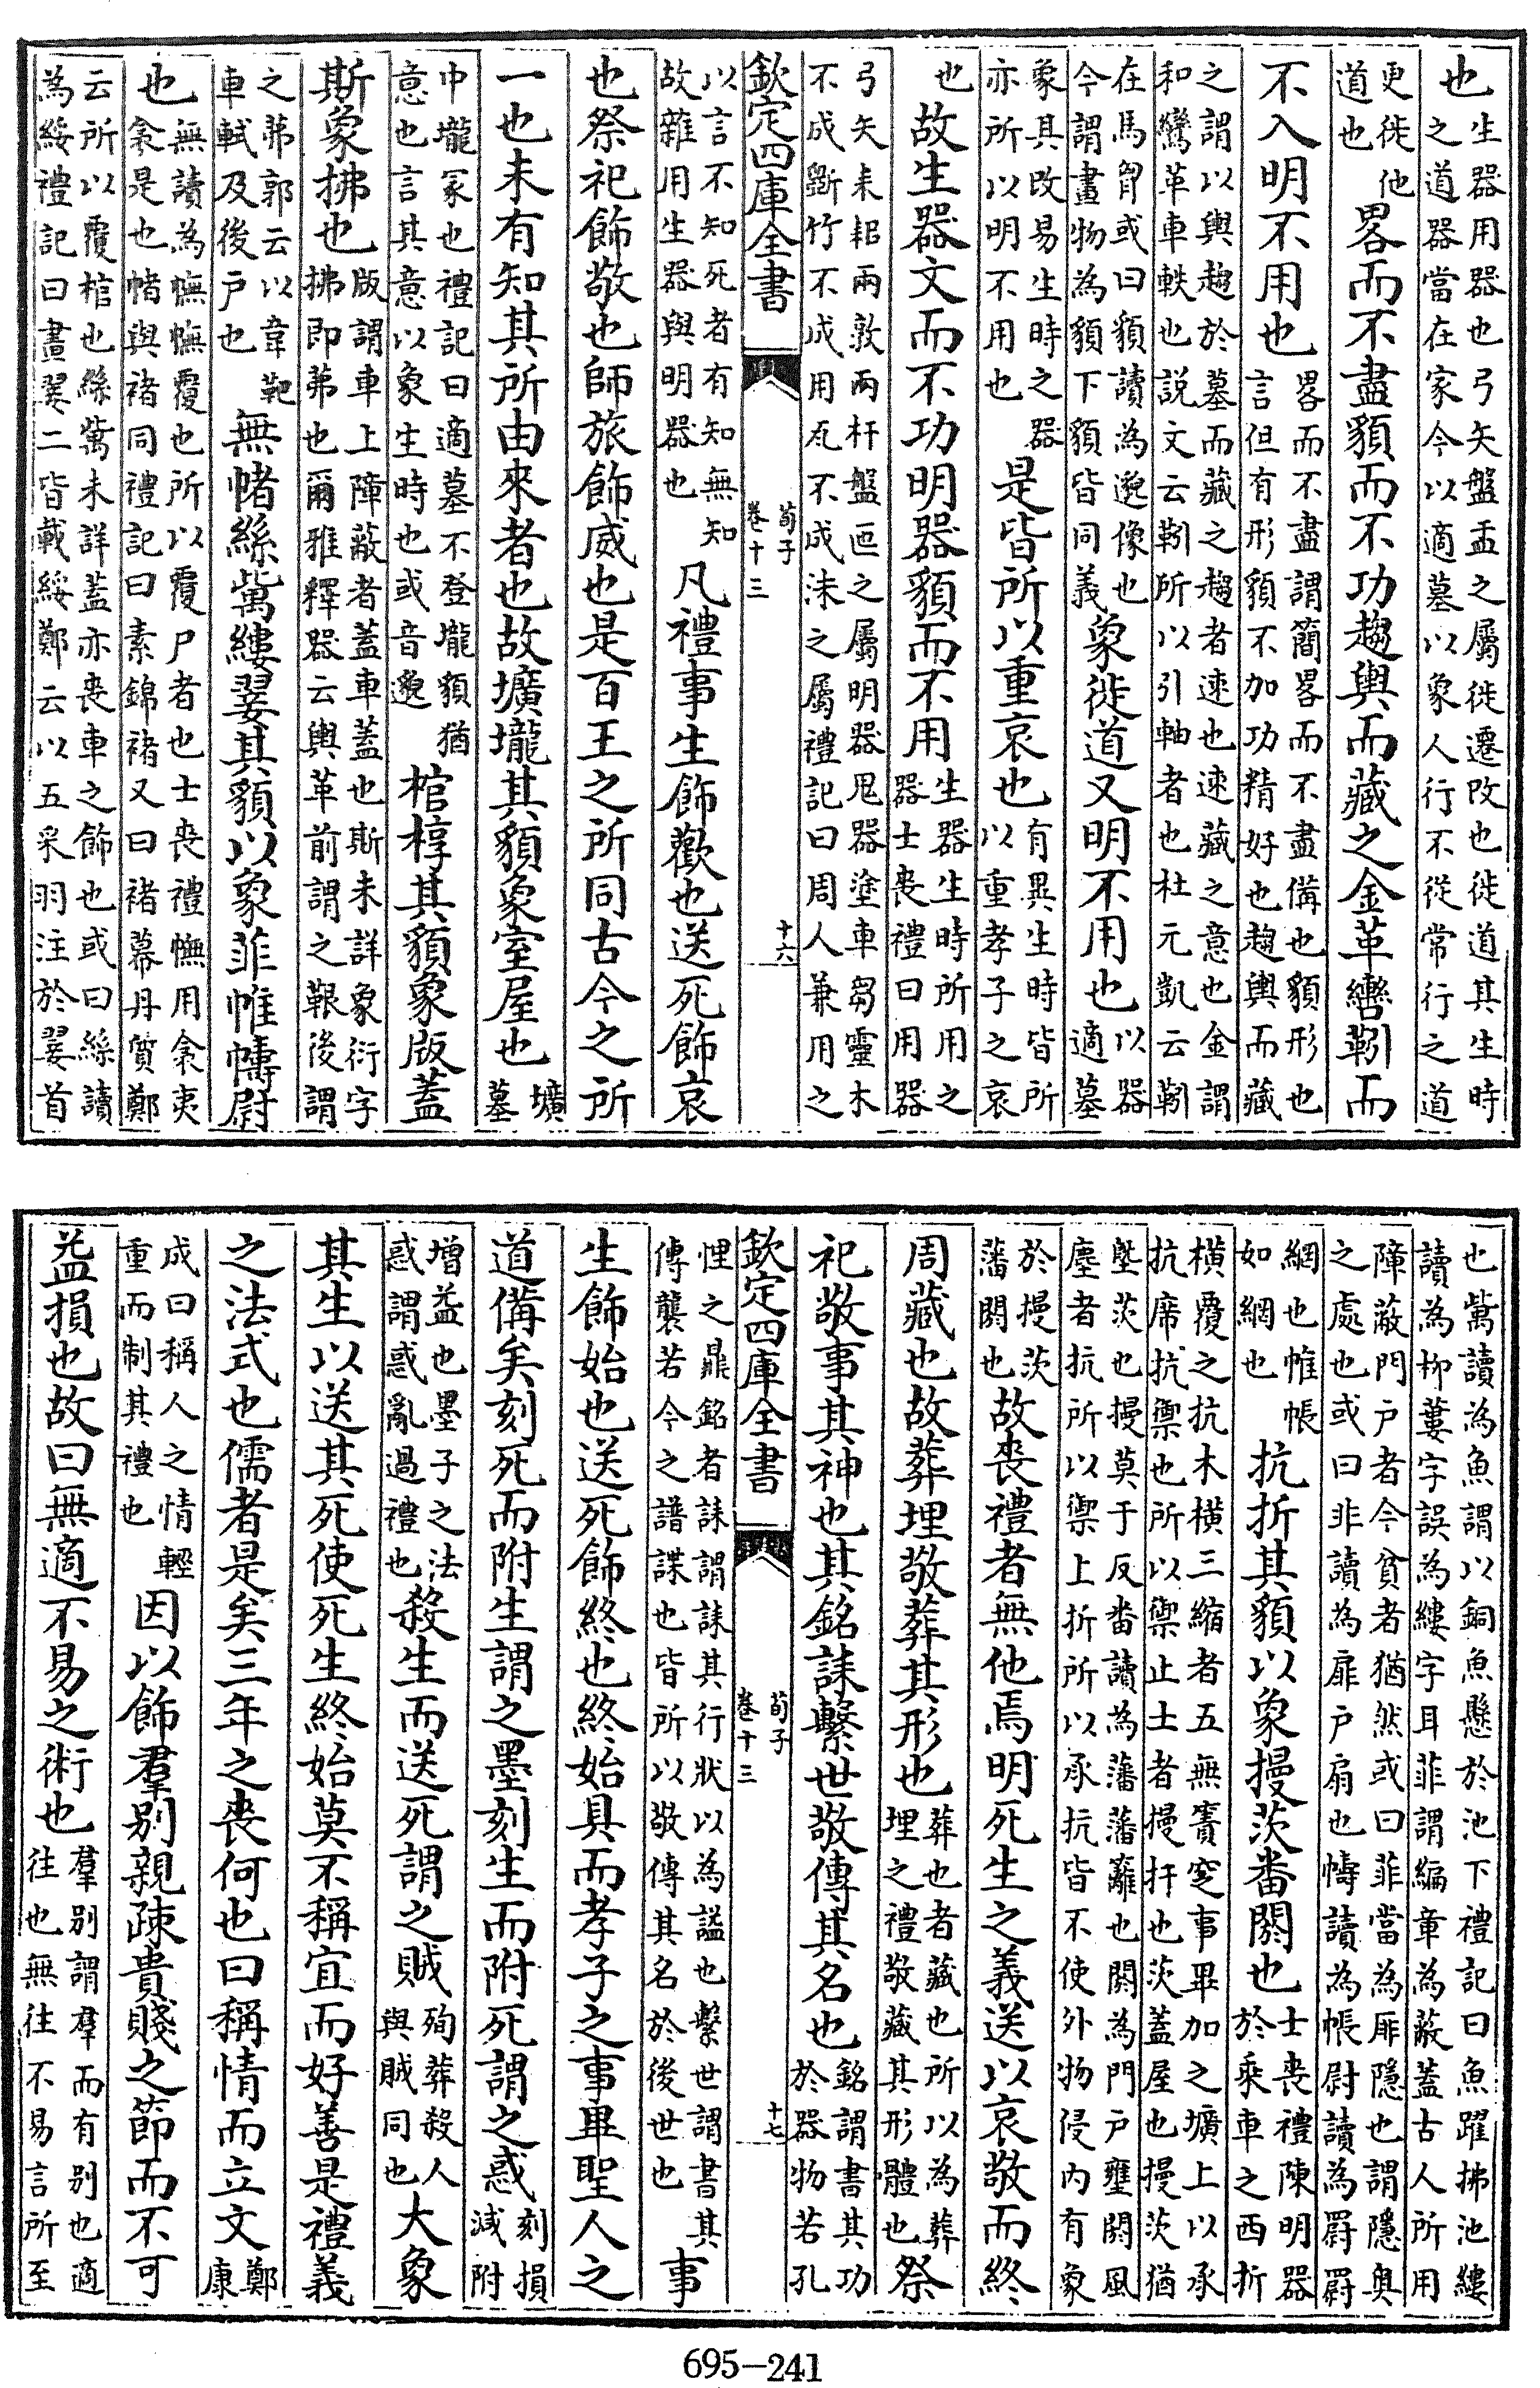 也生器用器也弓矢盤盂之屬徙遷改也徙道其生時之道器當在家今以適墓以象人行不從常行之道
更徙他道也畧而不盡䫉而不功趨輿而藏之金革轡靷而
不入明不用也畧而不盡謂簡畧而不盡備也䫉形也言但有形䫉不加功精好也趨輿而藏
之謂以輿趨於墓而藏之趨者速也速藏之意也金謂和鸞革車軼也説文云靷所以引軸者也杜元凱云靷
在馬胷或曰䫉讀為邈像也今謂畫物為䫉下䫉皆同義象徙道又明不用也以器適墓
象其改易生時之器亦所以明不用也是皆所以重哀也有異生時皆所以重孝子之哀
也故生器文而不功明器䫉而不用生器生時所用之器士喪禮曰用器
弓矢耒耜兩敦兩杅盤匜之屬明器鬼器塗車芻靈木不成斵竹不成用瓦不成沬之屬禮記曰周人兼用之
欽定四庫全書 荀子 卷十三 十六
以言不知死者有知無知故雜用生器與明器也凡禮事生飾歡也送死飾哀
也祭祀飾敬也師旅飾威也是百王之所同古今之所
一也未有知其所由來者也故壙壠其䫉象室屋也壙墓
中壠冢也禮記曰適墓不登壠䫉猶意也言其意以象生時也或音邈棺椁其䫉象版蓋
斯象拂也版謂車上障蔽者蓋車蓋也斯未詳象衍字拂即茀也爾雅釋器云輿革前謂之鞎後謂
之茀郭云以韋靶車軾及後戶也無帾絲歶縷翣其䫉以象菲帷幬尉
也無讀為幠幠覆也所以覆尸者也士喪禮幠用衾夷衾是也帾與褚同禮記曰素錦褚又曰褚幕丹質鄭
云所以覆棺也絲歶未詳蓋亦喪車之飾也或曰絲讀為綏禮記曰畫翣二皆載綏鄭云以五采羽注於翣首
也歶讀為魚謂以銅魚懸於池下禮記曰魚躍拂池縷讀為柳蔞字誤為縷字耳菲謂編章為蔽蓋古人所用
障蔽門戶者今貧者猶然或曰菲當為厞隱也謂隱奧之處也或曰菲讀為扉戶扇也幬讀為帳尉讀為罻罻
網也帷帳如網也抗折其䫉以象㨢茨番閼也士喪禮陳明器於乘車之西折
橫覆之抗木橫三縮者五無簀窆事畢加之壙上以承抗席抗禦也所以禦止士者㨢扜也茨蓋屋也㨢茨猶
塈茨也㨢莫于反番讀為藩藩籬也閼為門戶壅閼風塵者抗所以禦上折所以承抗皆不使外物侵內有象
於㨢茨藩閼也故喪禮者無他焉明死生之義送以哀敬而終
周藏也故葬埋敬葬其形也葬也者藏也所以為葬埋之禮敬藏其形體也祭
祀敬事其神也其銘誄繫世敬傳其名也銘謂書其功於器物若孔
欽定四庫全書 荀子 卷十三 十七
悝之鼎銘者誄謂誄其行狀以為諡也繫世謂書其傳襲若今之譜諜也皆所以敬傳其名於後世也事
生飾始也送死飾終也終始具而孝子之事畢聖人之
道備矣刻死而附生謂之墨刻生而附死謂之惑刻損減附
增益也墨子之法惑謂惑亂過禮也殺生而送死謂之賊殉葬殺人與賊同也大象
其生以送其死使死生終始莫不稱宜而好善是禮義
之法式也儒者是矣三年之喪何也曰稱情而立文鄭康
成曰稱人之情輕重而制其禮也因以飾羣別親疎貴賤之節而不可
益損也故曰無適不易之術也羣別謂羣而有別也適往也無往不易言所至
695-241